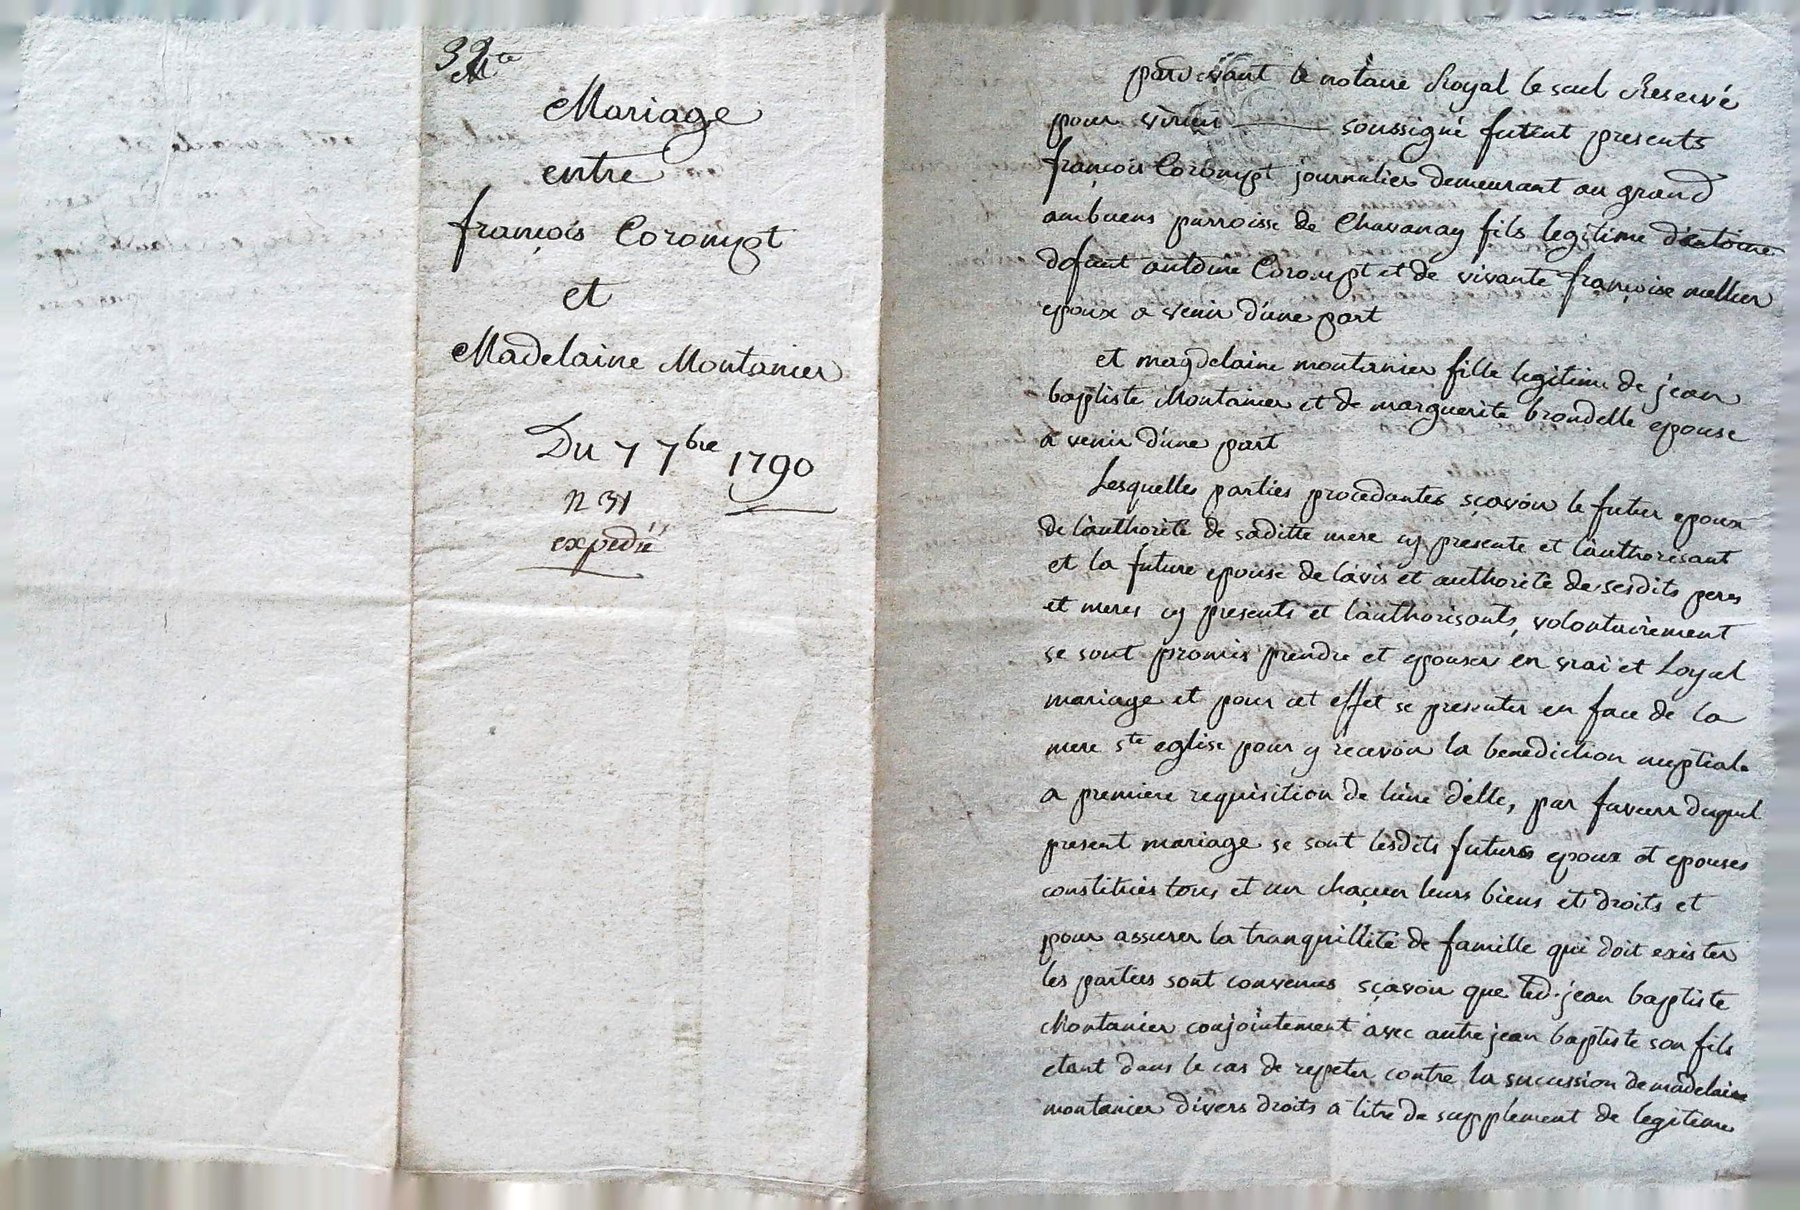 32
Mte
Mariage
entre
françois Corompt
et
Madelaine Montanier
Du 7 7bre 1790
n 31
expedié
pardevant le notaire Royal le seul Reservé
pour virieu soussigné futent presents
françois Corompt journalier demeurant au grand
ambuens parroisse de Chavanay fils legitime d'antoine
defunt antoine Corompt et de vivante françoise mellier
epoux a venir d'une part
et magdelaine montanier fille legitime de jean
baptiste Montanier et de marguerite brondelle epouse
a venir d'une part
Lesquelles parties procedantes sçavoir le futur epoux
de l'authorité de saditte mere cy presente et l'authorisant
et la future epouse de l'avis et authorité de sesdits peres
et meres cy presents et l'authorisants, volontairement
se sont promis prendre et epouser en vrai et Loyal
mariage et pour cet effet se presenter en face de la
mere ste eglise pour y recevoir la benediction nuptiale
a premiere requisition de l'une d'elle, par faveur duquel
present mariage se sont lesdits futurs epoux et epouses
constitués tous et un chaçun leurs biens et droits et
pour assurer la tranquillité de famille qui doit exister
les parties sont convenus sçavoir que led. jean baptiste
Montanier conjointement avec autre jean baptiste son fils
etant dans le cas de repeter contre la sucession de madelaine
montanier divers droits a titre de supplement de legitime